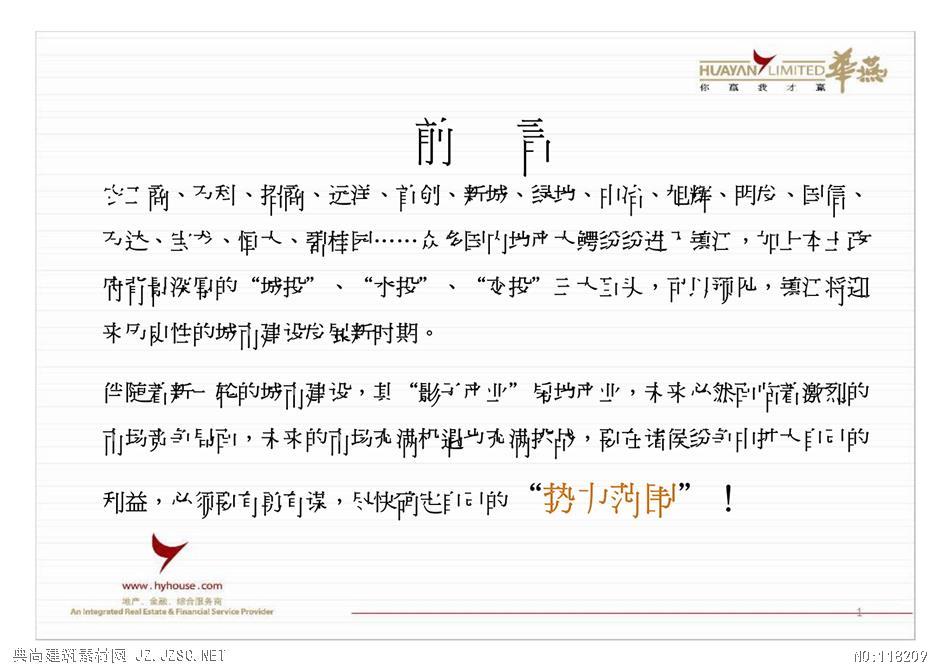 前 言
农工商、万科、招商、远洋、首创、新城、绿地、旭辉、明发、国信、
万达、恒大、碧桂园……众多国内地产大鳄纷纷进入镇江，加上本土政
府背景深厚的“城投”、“水投”、“交投”三大巨头，可以预见，镇江将迎
来历史性的城市建设发展新时期。
伴随着新一轮的城市建设，其“影子产业”房地产业，未来必然面临着激烈的
市场竞争局面，未来的市场充满机遇也充满挑战，在诸侯纷争中扩大自己的
利益，必须要有勇有谋，尽快确立自己的“势力范围”！
HUAYAN LIMITED 華燕
你 赢 我 才 赢
www.hyhouse.com
地产、金融、综合服务商
An Integrated Real Estate & Financial Service Provider
1
典尚建筑素材网 JZ.JZSC.NET
NO:118209